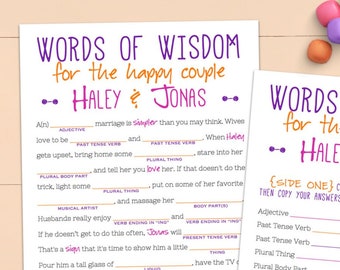 WORDS OF WISDOM
for the happy couple
HALEY & JONAS
A(n) ADJECTIVE marriage is simpler than you may think. Wives
love to be PAST TENSE VERB and PAST TENSE VERB. When Haley
gets upset, bring home some PLURAL THING, stare into her
PLURAL BODY PART and tell her you love her. If that doesn't do the
trick, light some PLURAL THING, put on some of her favorite
MUSICAL ARTIST, and massage her BODY PART(S).
Husbands really enjoy VERB ENDING IN "ING" and VERB ENDING IN "ING".
If he doesn't get to do this often, Jonas will PRESENT TENSE VERB.
That's a sign that it's time to show him a little THING.
Pour him a tall glass of LIQUID, have the TV
WORDS
for th
HALE
{SIDE ONE} C
THEN COPY YOUR ANSWERS
Adjective
Past Tense Verb
Past Tense Verb
Plural Thing
Plural Body Part